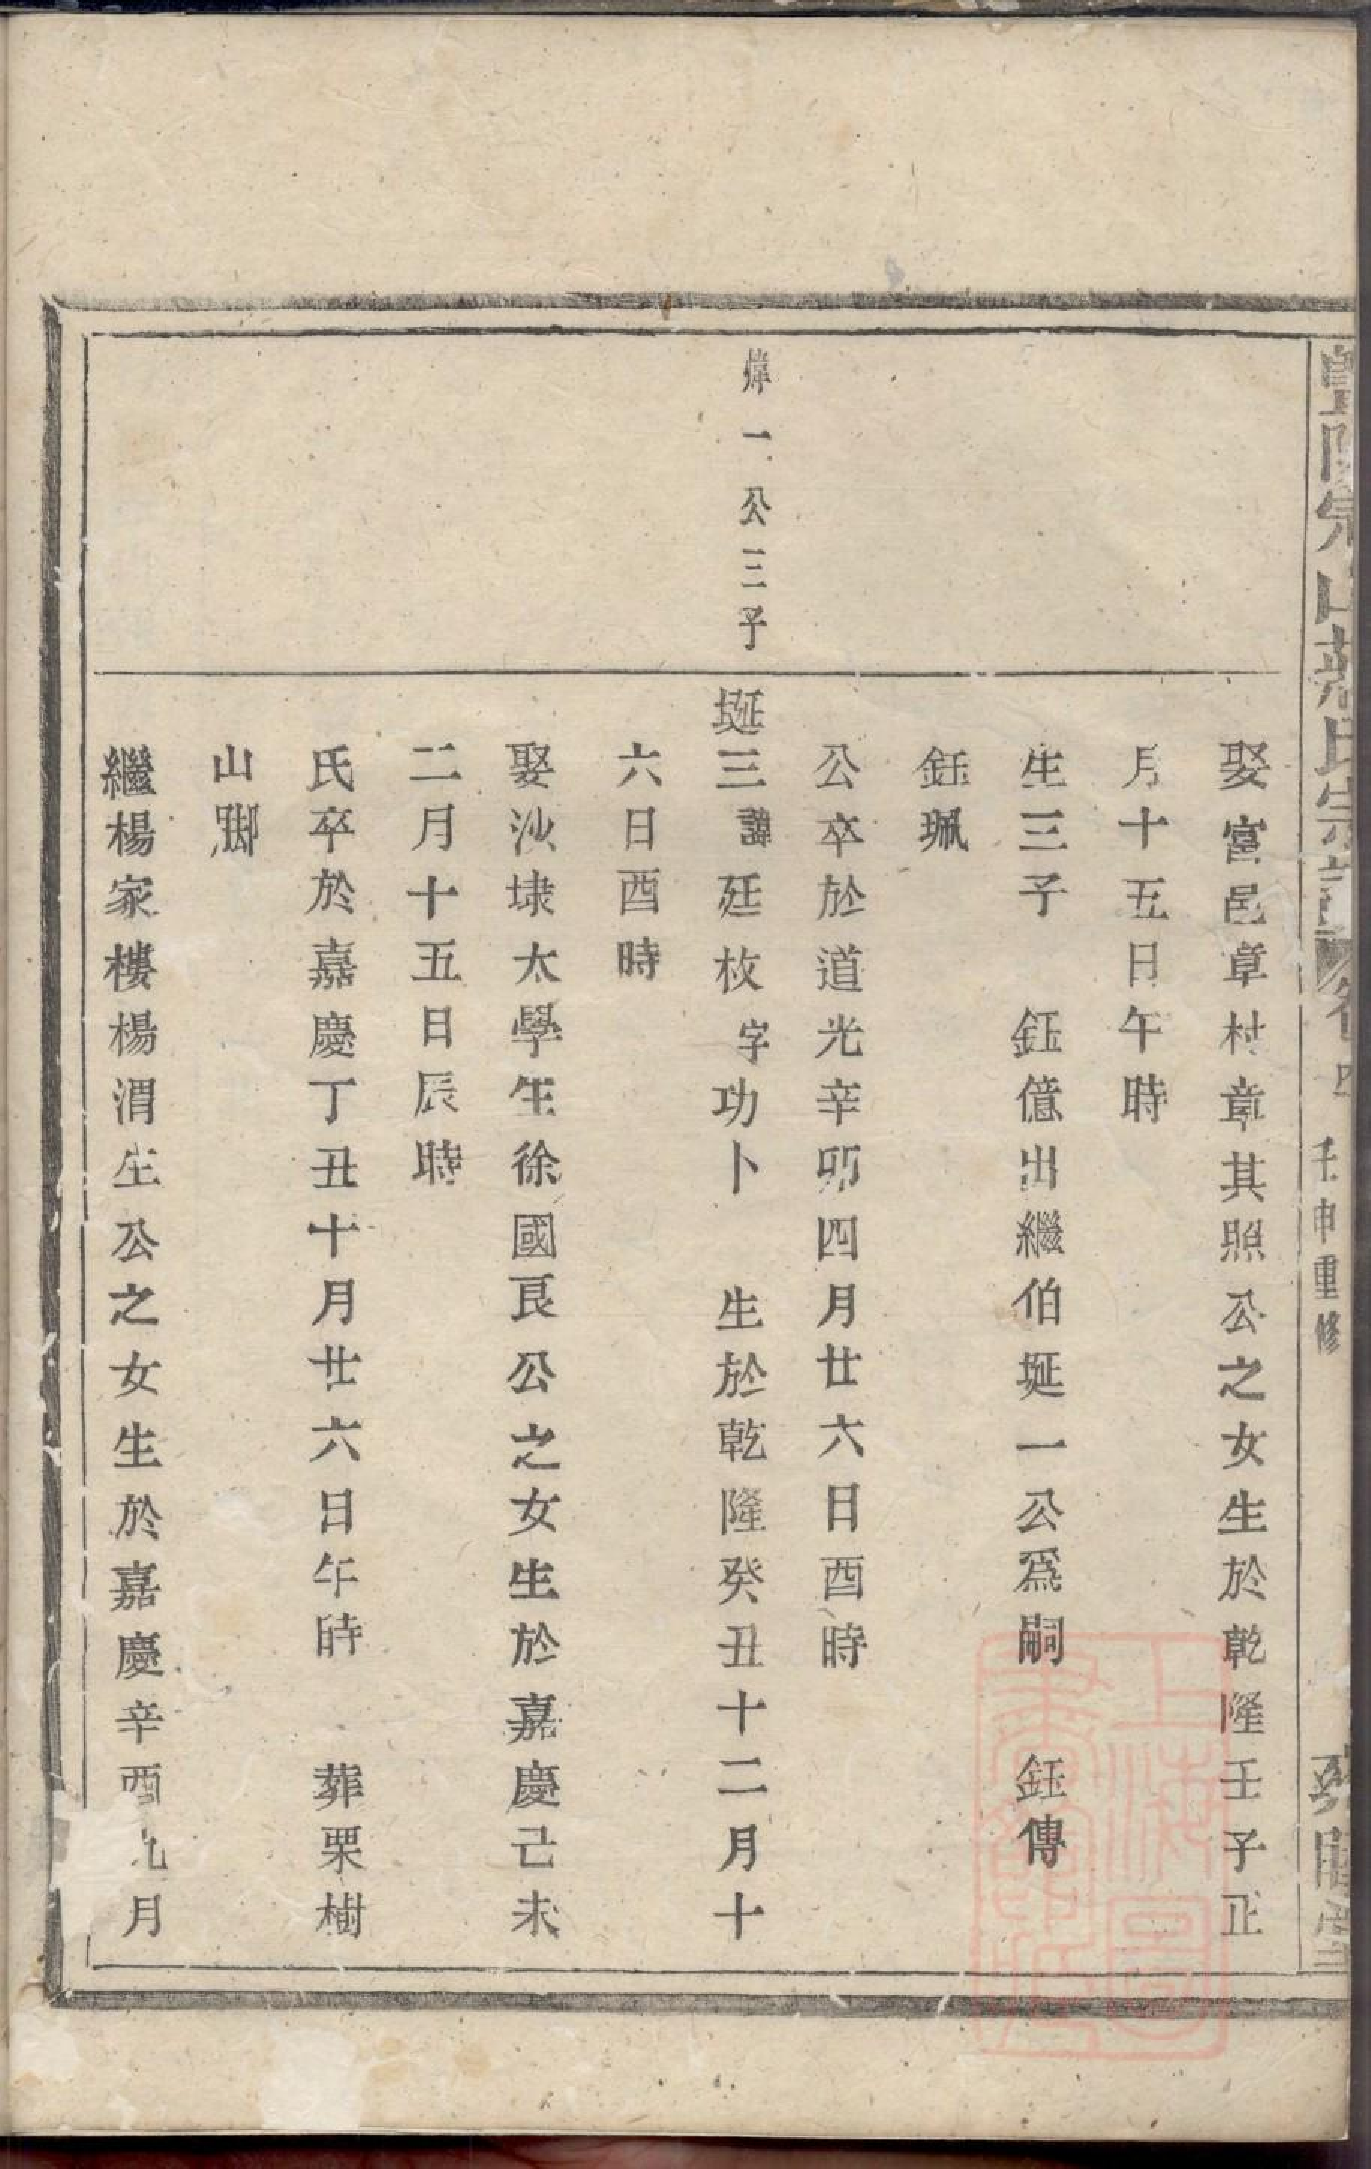 暨陽宛山蔡氏宗譜 卷四 壬申重修
娶富邑章村章其照公之女生於乾隆壬子正
月十五日午時
生三子 鈺億出繼伯埏一公爲嗣 鈺傳
鈺珮
公卒於道光辛卯四月廿六日酉時
煒一公三子
埏三諱廷枚字功卜 生於乾隆癸丑十二月十
六日酉時
娶沙埭太學生徐國良公之女生於嘉慶己未
二月十五日辰時
氏卒於嘉慶丁丑十月廿六日午時 葬栗樹
山腳
繼楊家樓楊渭生公之女生於嘉慶辛酉九月
上海圖書館藏